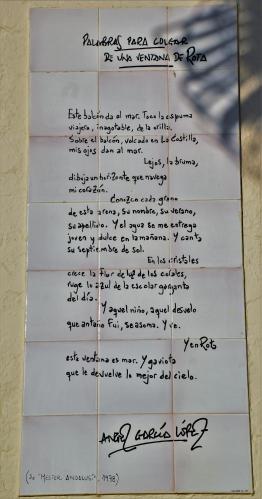 PALABRAS PARA COLGAR
DE UNA VENTANA DE ROTA
Este balcón da al mar. Toca la espuma
viajera, inagotable, de la orilla.
Sobre el balcón, volcado en La Costilla,
mis ojos dan al mar.
Lejos, la bruma,
dibuja un horizonte que navega
mi corazón.
Conozco cada grano
de esta arena, su nombre, su verano,
su apellido. Y el agua se me entrega
joven y dulce en la mañana. Y canta
su septiembre de sol.
En los cristales
crece la flor de luz de los corales,
ruge lo azul de la escolar garganta
del día.
Y aquel niño, aquel desvelo
que antaño fui, se asoma. Y ve.
Y en Rota
esta ventana es mar. Y gaviota
que le devuelve lo mejor del cielo.
ANGEL GARCÍA LÓPEZ
(De "MESTER ANDALUSÍ", 1978)